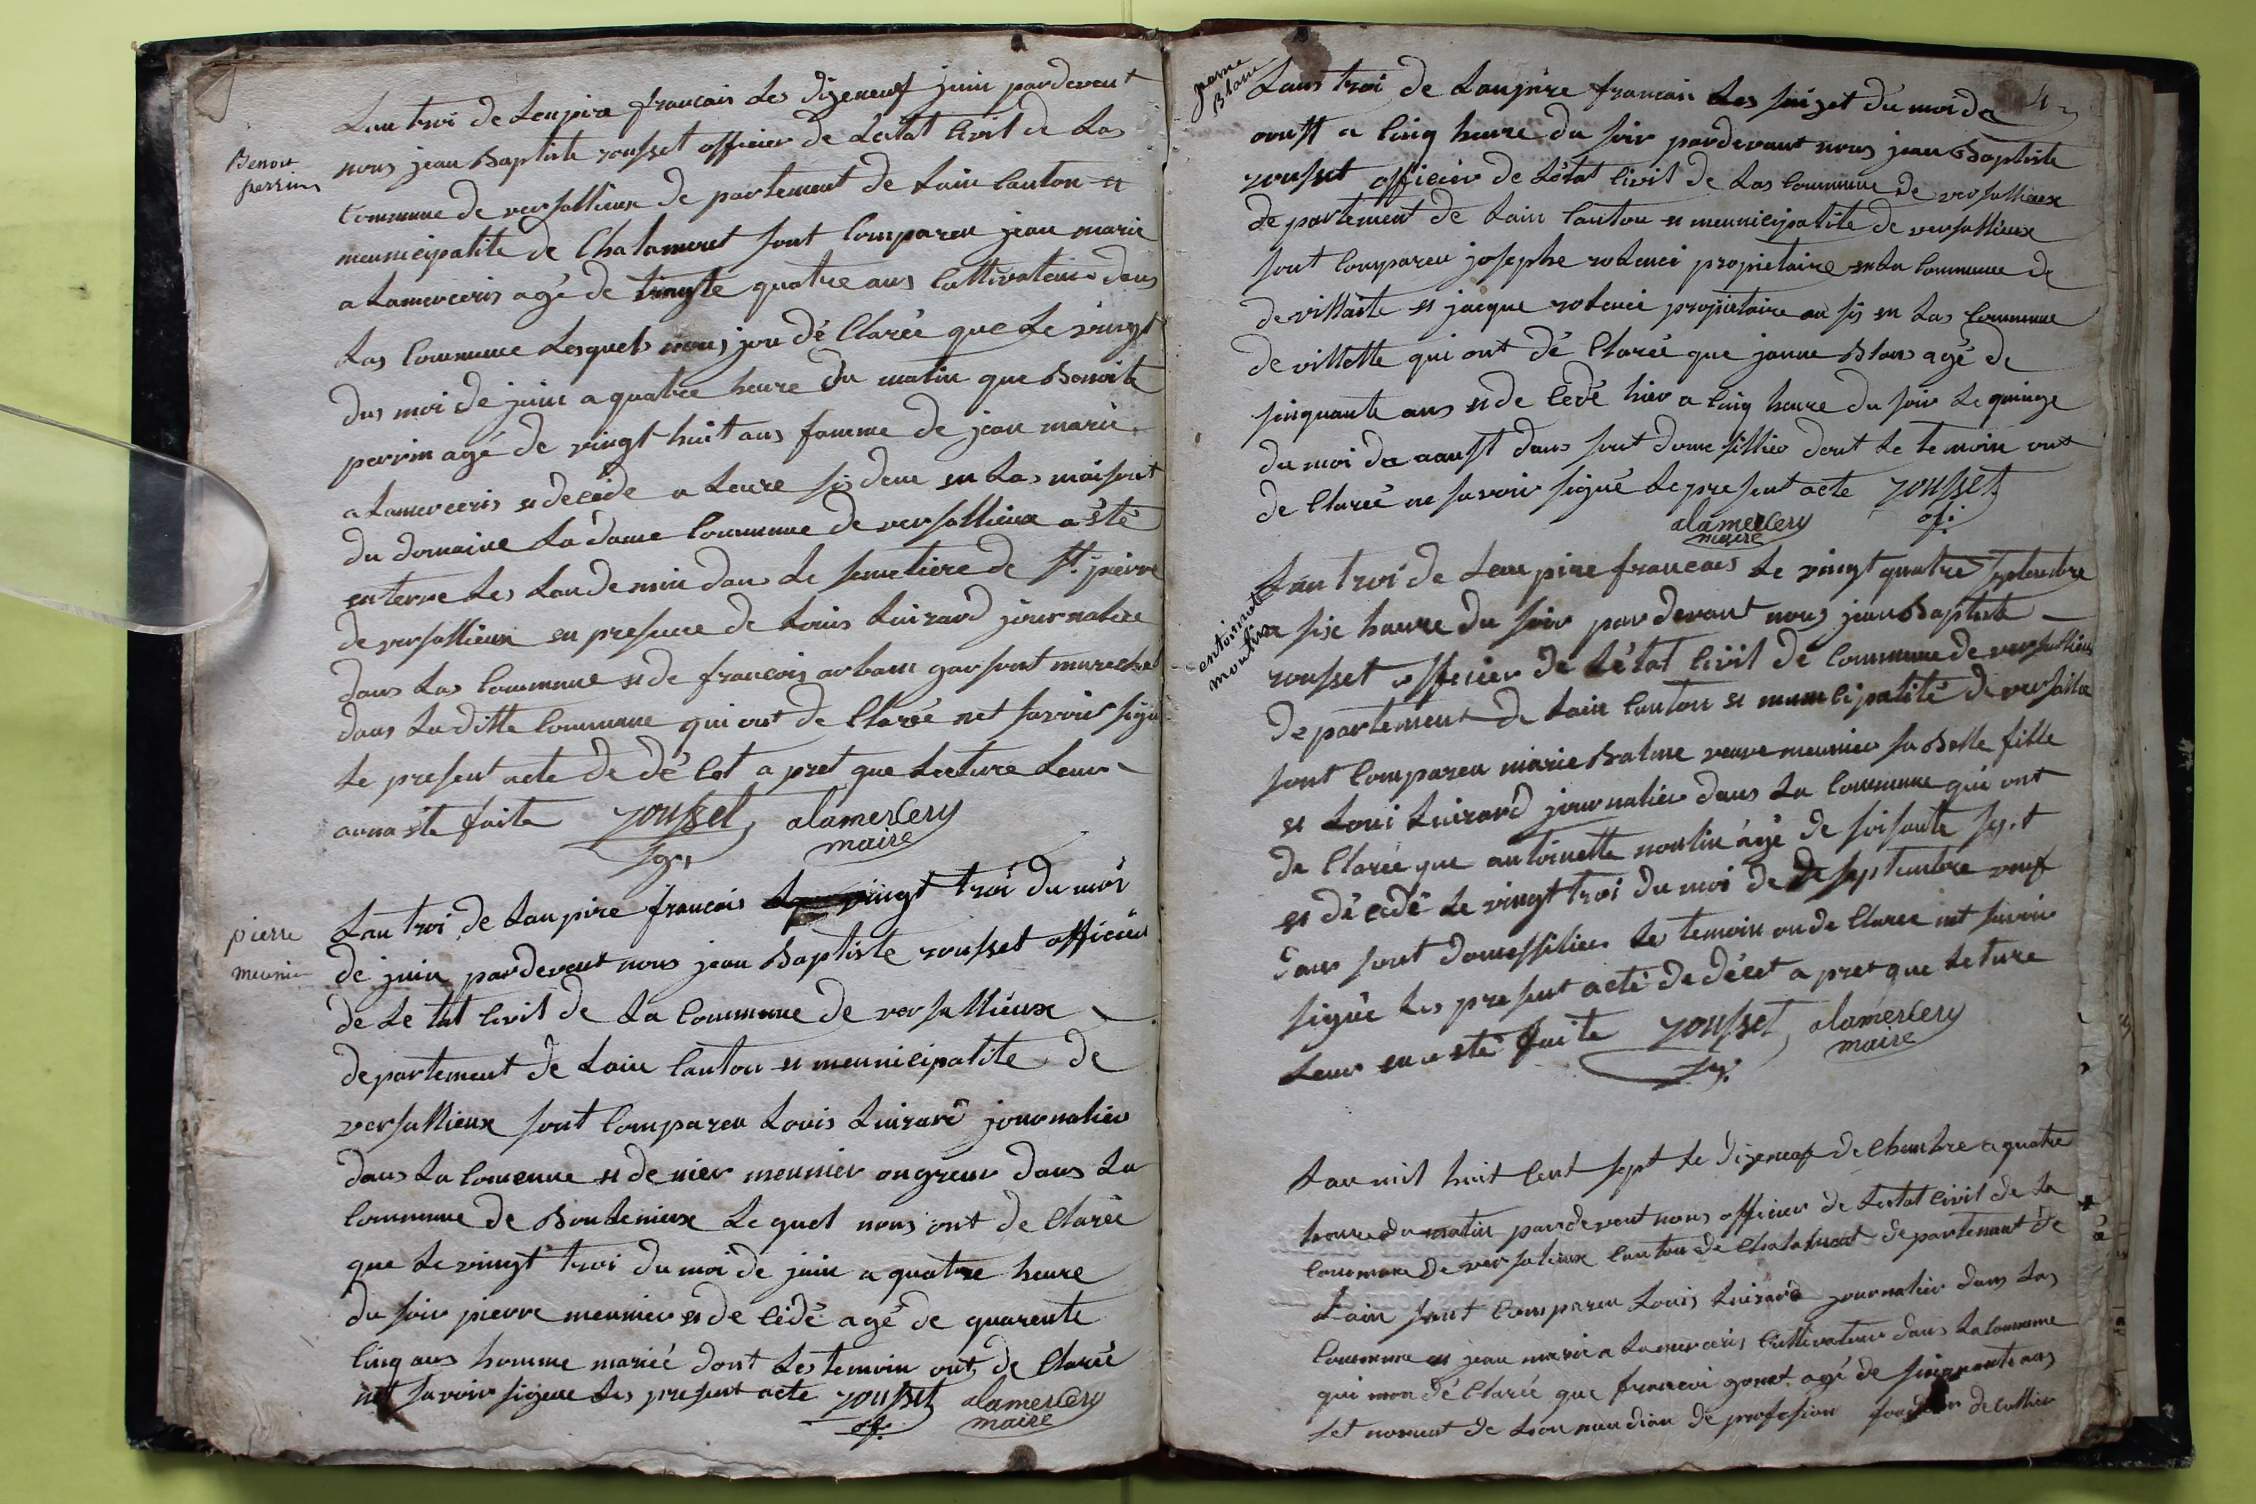 Benoit
perrins
Lan troi de Lenpire francais Les dizeneuf juin pardevent
nous jean Baptiste rousset officier de Léctat Civil de Las
Commune de versallieux de partement de Lain Canton et
meunicipalite de Chalamont sont Compareu jean marie
a Lamerceris agé de trangte quatre ans Cultivateur dans
Las Commune Lesquels nous jon dé Clarée que Le vingt
dus moi de juin a quatre heure du matin que Benoite
perrin agé de vingt huit ans famme de jean marie
a Lamerceris et decede a Leure sis dem en Las maisont
du domaine La dame Commune de versallieux a été
enterre Les Lendemin dans Le semetiere de St. pierre
de versallieux en presence de Louis Luizard journaliere
dans Las Commune et de francois arbani garsont marechal
dans Laditte Commune qui ont de Clarée net savoir signe
Le present acte de dé Cet a pret que Lecture Leur
anna ste faite rousset, alamercery
maire
pierre
meunier
Lan troi de Lanpire francais vingt troi du moi
de juin pardevent nous jean Baptiste rousset officiér
de Le tat Civil de La Commune de versallieux
departement de Lain Canton et meunicipalite de
versallieux sont Comparen Louis Luizard journalier
dans La Comenne et denier meunier ongreur dans La
Commune de Boulenieux Le quel nous ont de Clarée
que Le vingt troi du moi de juin a quatre heure
du soir pierre meunier et de Cédé agé de quarente
Cinq ans homme mariéé dont Les temoin ont de Clarée
net savoir signeue Les present acte rousset alamercery
of. maire
jeanne
Blanc
Lans troi de Lanpire francais Les saizet du moi de
aoust a Cinq heure du soir pardevant nous jean Baptiste
rousset officier de Létat Civil de Las Commune de versallieux
de partement de Lain Canton et meunicipalite de versallieux
sont Compareu josephe rolenci propietaire en La Commune de
de villaite et jacque rolencie propietaire au sis en Las Commune
de villette qui ont dé Clarée que janne Blans agé de
sinquante ans et de Cédé hier a Cinq heure du soir Le quinze
du moi de aoust dans sont domesillier dont Le temoin ont
de Clareé ne savoir signé Le present acte rousset
alamercery of.
maire
antoinnete
moulin
Lan troi de Lenpire francais Le vingt quatre septenbre
a sixe heure du soir pardevant nous jean Baptiste
rousset officier de Létat Civil de Commune de versallieux
departement de Lain Canton et municipalité de versalieu
sont Compareu marie Balme veuve meunier sa Belle fille
et Loui Luizard journalier dans La Commune qui ont
de Clarée que antoinette moulin agé de soisante sept
et dé Cédé Le vingt troi du moi de septembre veuf
dans sont domessilier Les temoin on de Claree net savoir
signée Les present acté de décet a pret que Leture
Leur en a eté faite rousset, alamercery
maire
Lan mil huit Cent sept Le dizeneuf dé Chembre a quatre
heure du matin pardevent nous officier de Lestat Civil de La
Commune de versalieux Canton de Chalamont departemant de
Lain sont Compareu Louis Luizard journalier dans Las
Commune et jean marie a Lamerceris Cultivateur dans La Commune
qui mon dé Clarée que francoi gonet agé de sinquante ans
set noment de Lion mandian de profesion